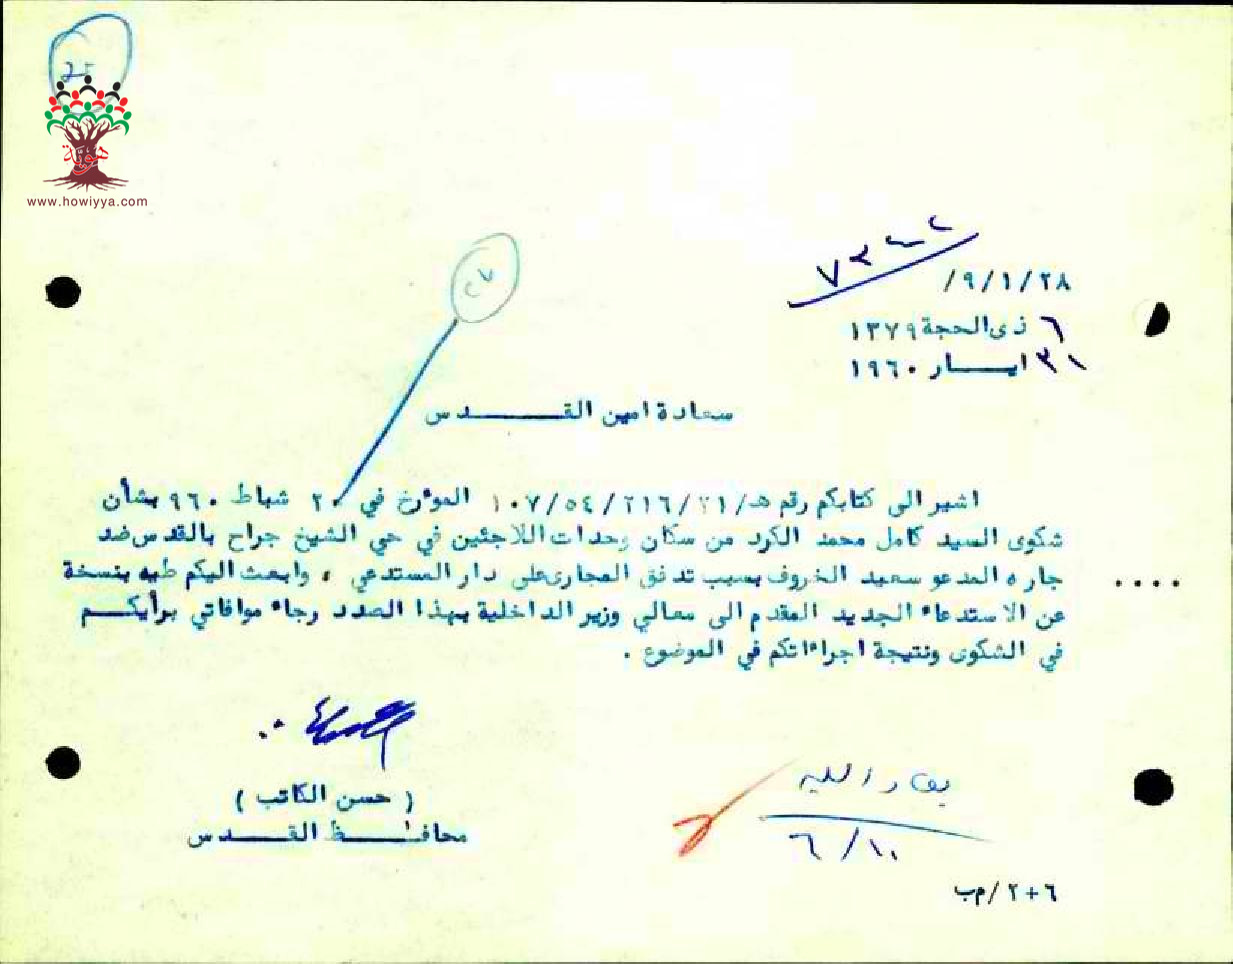 25
هوية
www.howiyya.com
٢٨/١/٩/
٦ ذى الحجة ١٣٧٩
٣١ ايـــار ١٩٦٠
سعادة امين القــــدس
اشير الى كتابكم رقم هـ/٢١/٢١٦/٥٤/١٠٧ المؤرخ في ٢٠ شباط ٩٦٠ بشأن
شكوى السيد كامل محمد الكرد من سكان وحدات اللاجئين في حي الشيخ جراح بالقدس ضد
جاره المدعو سعيد الخروف بسبب تدفق المجارى على دار المستدعي ، وابعث اليكم طيه بنسخة ....
عن الاستدعاء الجديد المقدم الى معالي وزير الداخلية بهذا الصدد رجاء موافاتي برأيكــم
في الشكوى ونتيجة اجراءاتكم في الموضوع .
( حسن الكاتب )
محافــظ القــدس
٦/١٠
٦+٢/م ب